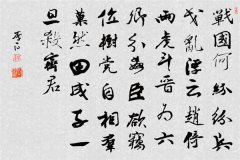 戰國何紛紛兵
戈亂浮云趙倚
兩虎斗晉為六
卿分奸臣欲竊
位樹党自相群
菓然田成子一
旦殺齊君